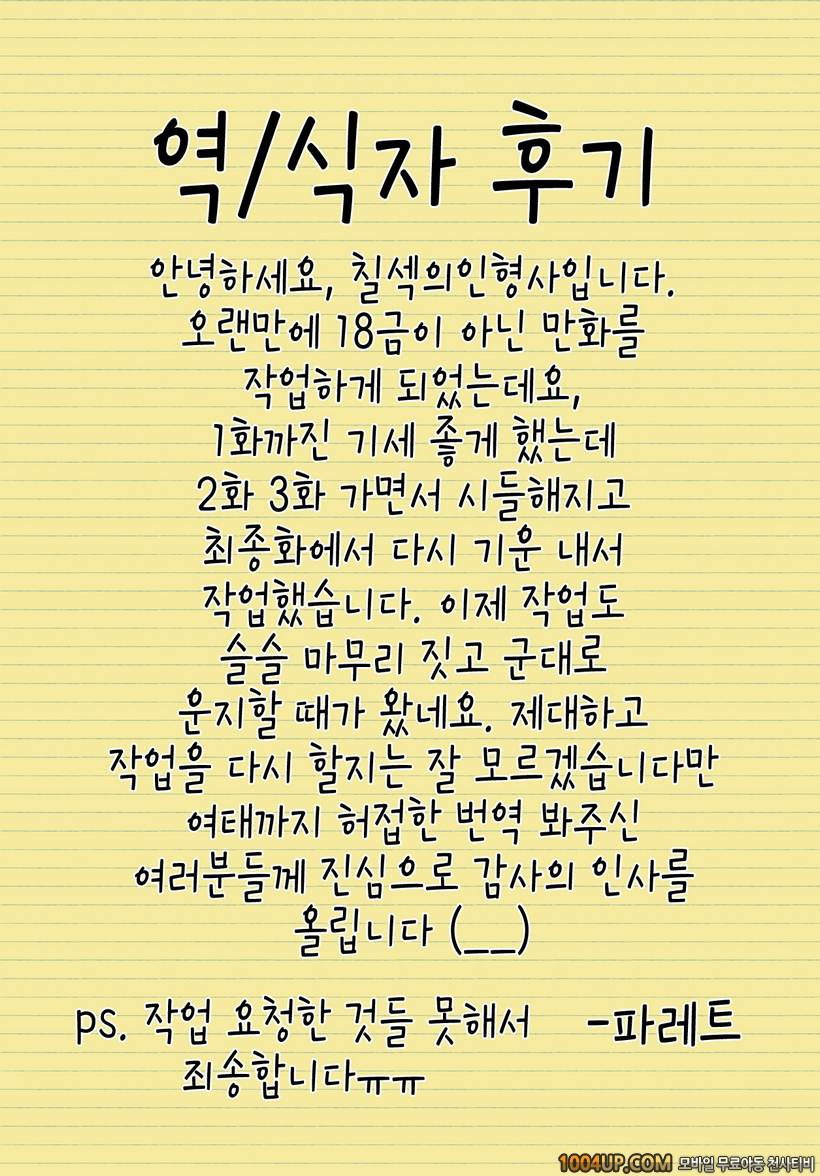 역/식자 후기
안녕하세요, 칠섹의인형사입니다.
오랜만에 18금이 아닌 만화를
작업하게 되었는데요,
1화까진 기세 좋게 했는데
2화 3화 가면서 시들해지고
최종화에서 다시 기운 내서
작업했습니다. 이제 작업도
슬슬 마무리 짓고 군대로
운지할 때가 왔네요. 제대하고
작업을 다시 할지는 잘 모르겠습니다만
여태까지 허접한 번역 봐주신
여러분들께 진심으로 감사의 인사를
올립니다 (__)
ps. 작업 요청한 것들 못해서 -파레트
죄송합니다ㅠㅠ
1004UP.COM 모바일 무료야동 천사티비